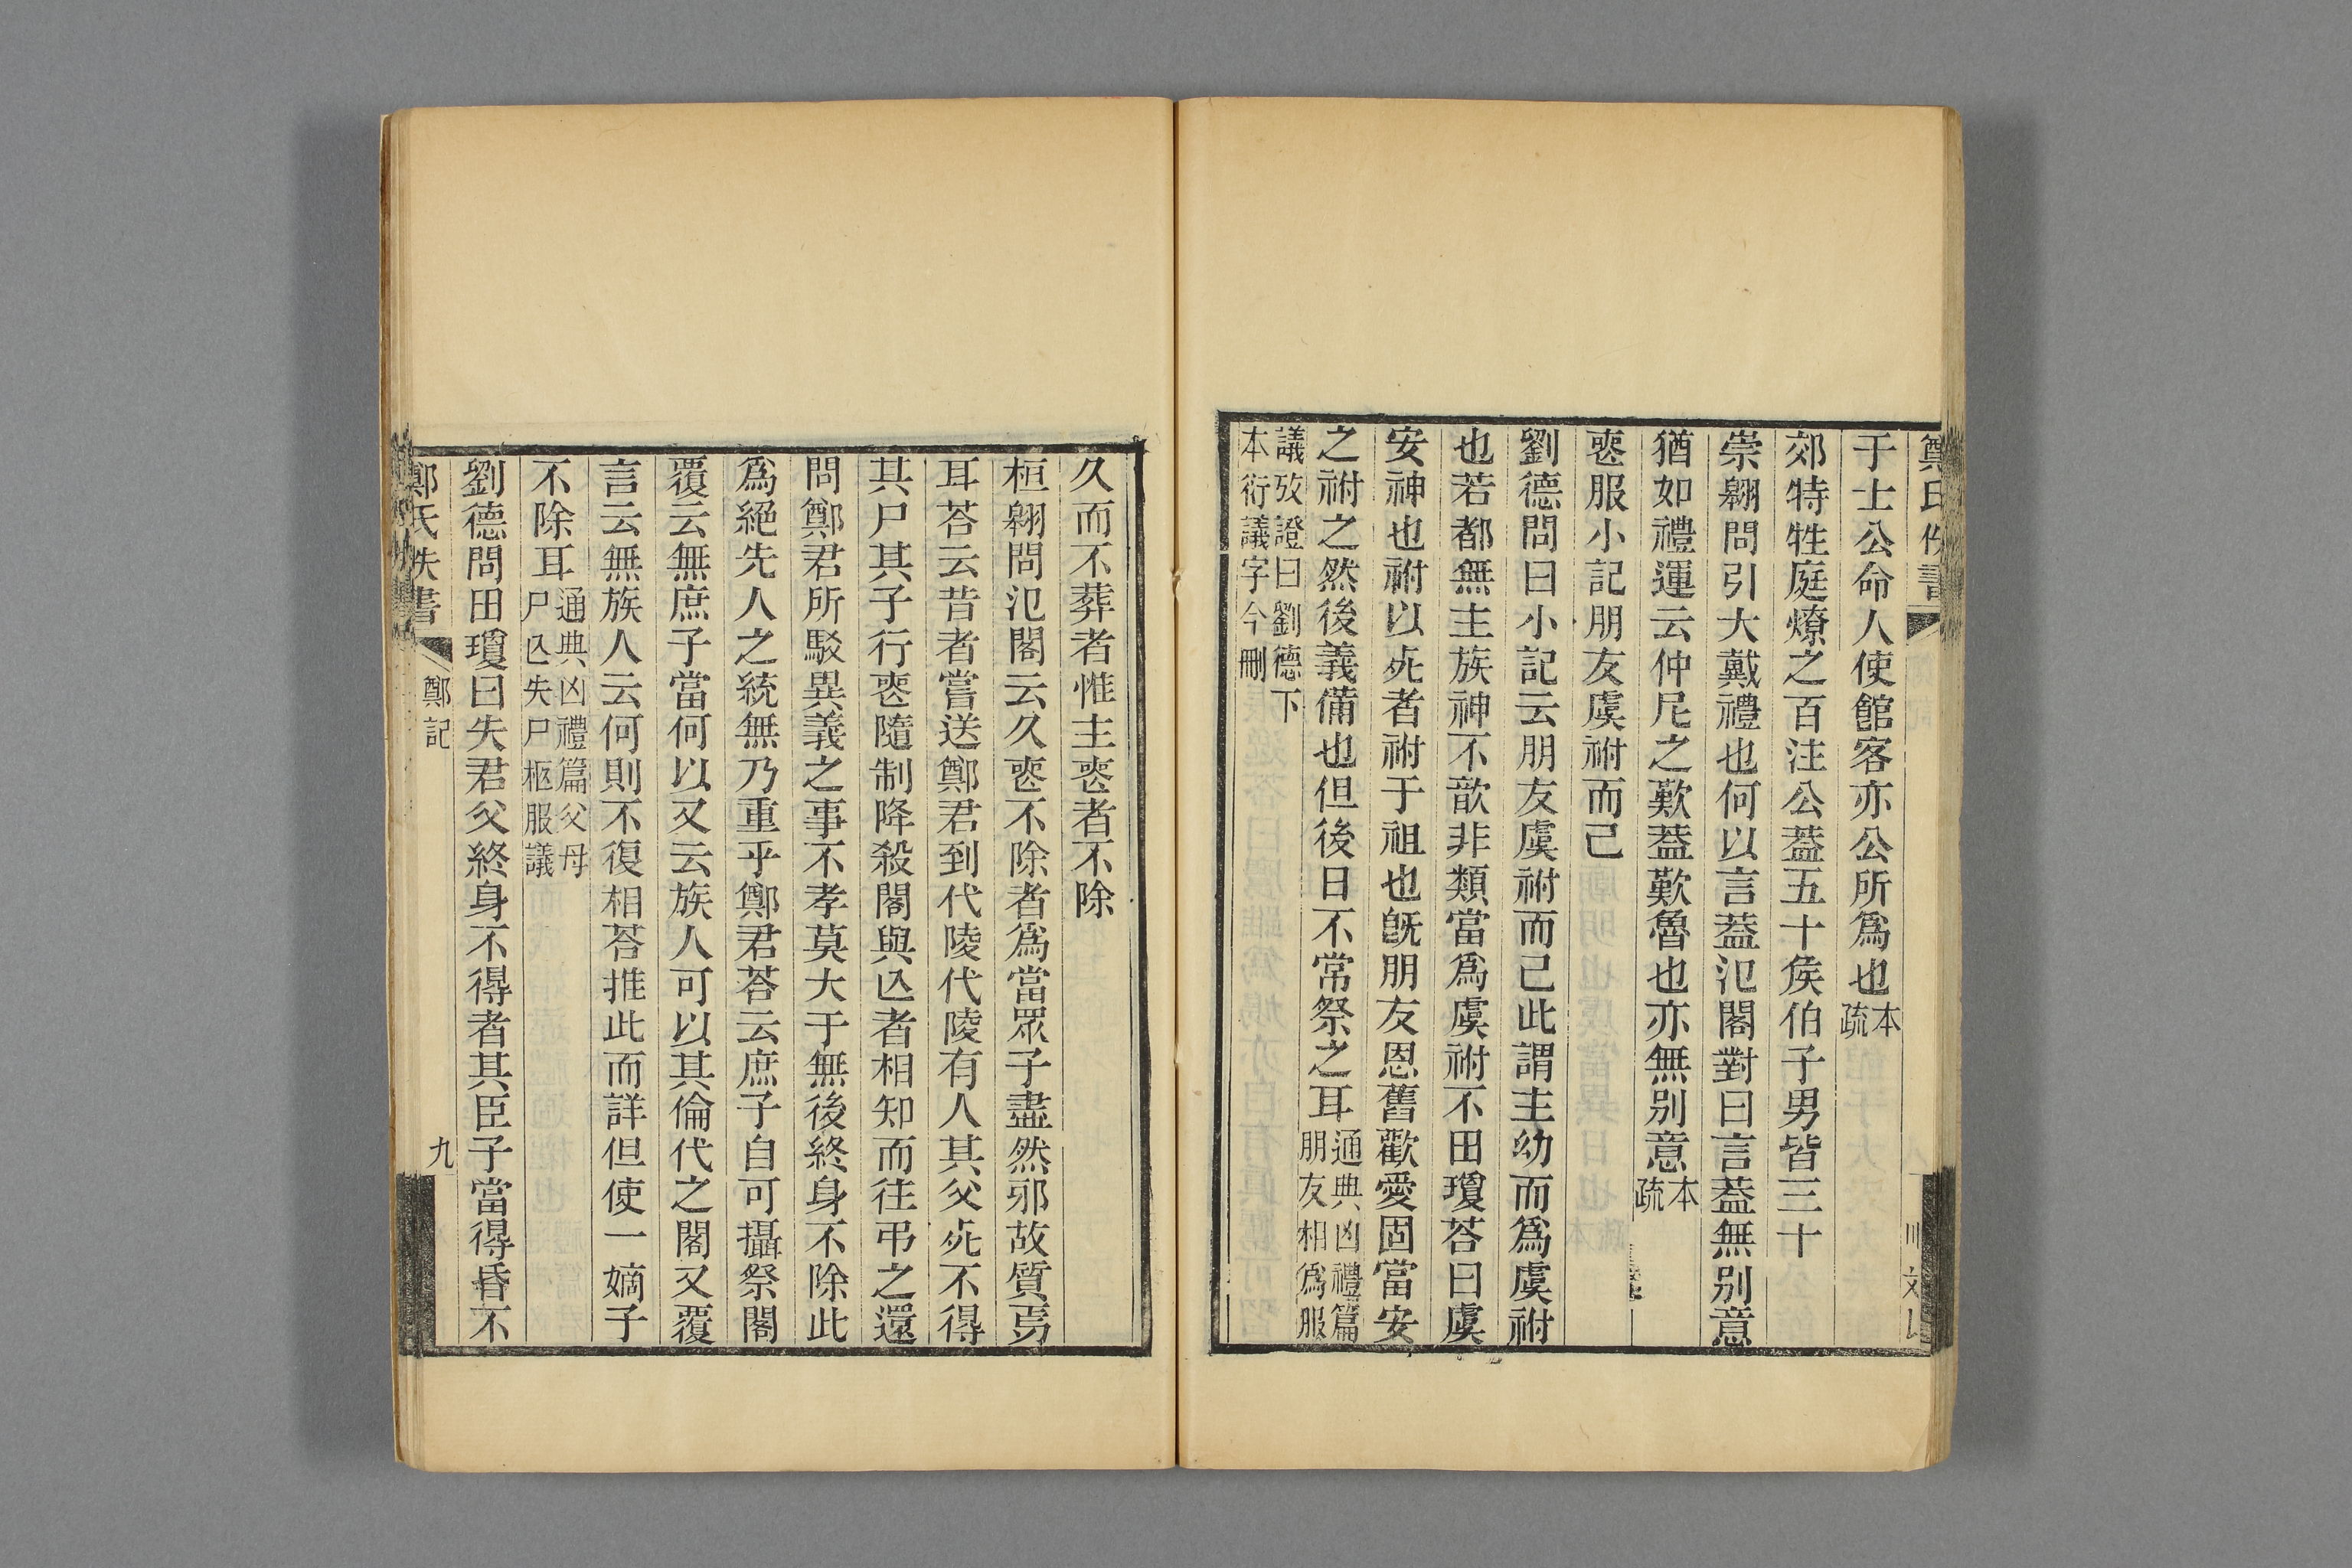 鄭氏佚書
于士公命人使館客亦公所爲也本疏
郊特牲庭燎之百注公蓋五十矦伯子男皆三十
崇翱問引大戴禮也何以言蓋氾閣對曰言蓋無別意
猶如禮運云仲尼之歎蓋歎魯也亦無別意本疏
喪服小記朋友虞祔而已
劉德問曰小記云朋友虞祔而已此謂主幼而爲虞祔
也若都無主族神不歆非類當爲虞祔不田瓊荅曰虞
安神也祔以死者祔于祖也旣朋友恩舊歡愛固當安
之祔之然後義備也但後日不常祭之耳通典凶禮篇
朋友相爲服
議攷證曰劉德下
本衍議字今刪
久而不葬者惟主喪者不除
桓翱問氾閣云久喪不除者爲當眾子盡然邪故質焉
耳荅云昔者嘗送鄭君到代陵代陵有人其父死不得
其尸其子行喪隨制降殺閣與亾者相知而往弔之還
問鄭君所駁異義之事不孝莫大于無後終身不除此
爲絕先人之統無乃重乎鄭君荅云庶子自可攝祭閣
覆云無庶子當何以又云族人可以其倫代之閣又覆
言云無族人云何則不復相荅推此而詳但使一嫡子
不除耳通典凶禮篇父母
尸亾失尸柩服議
劉德問田瓊曰失君父終身不得者其臣子當得昏不
鄭氏佚書
鄭記
九